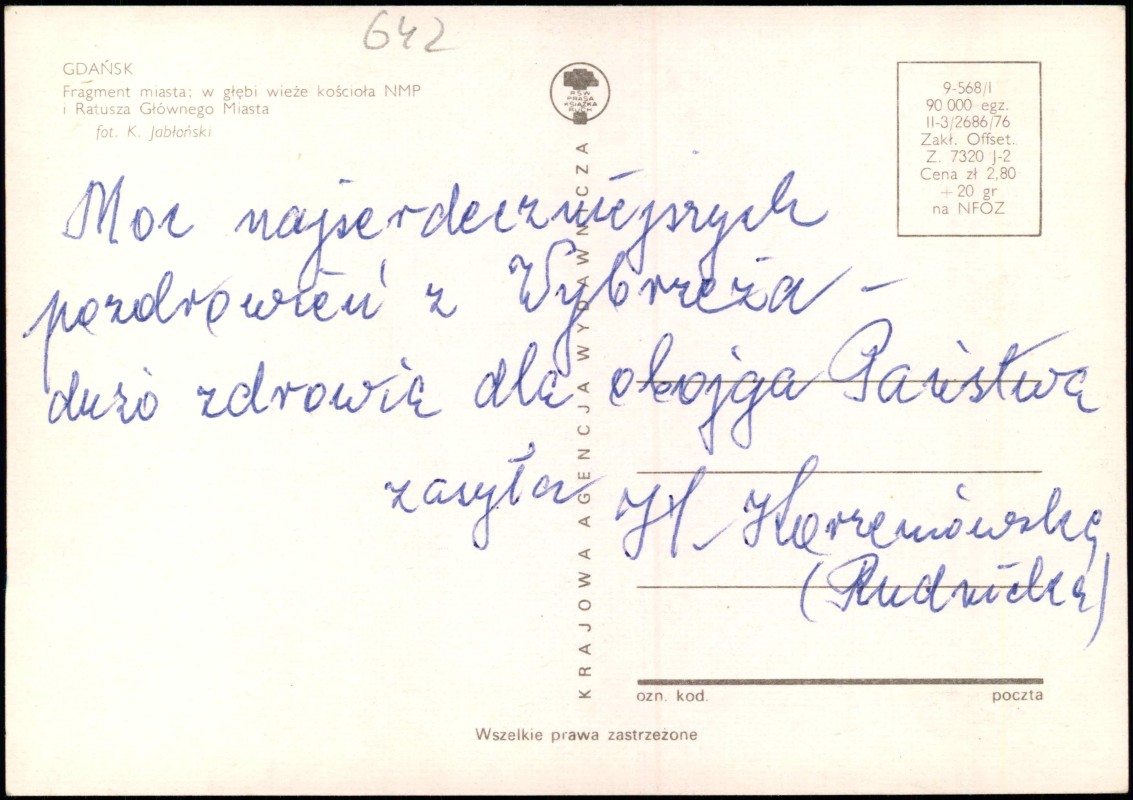 642
GDAŃSK
Fragment miasta; w głębi wieże kościoła NMP
i Ratusza Głównego Miasta
fot. K. Jabłoński
RSW
PRASA
KSIĄŻKA
RUCH
9-568/I
90 000 egz.
II-3/2686/76
Zakł. Offset.
Z. 7320 J-2
Cena zł 2,80
+ 20 gr
na NFOZ
Moc najserdeczniejszych
pozdrowień z Wybrzeża –
dużo zdrowia dla obojga Państwa
zasyła H. Korzeniowska
(Rudnicka)
KRAJOWA AGENCJA WYDAWNICZA
ozn. kod.
poczta
Wszelkie prawa zastrzeżone